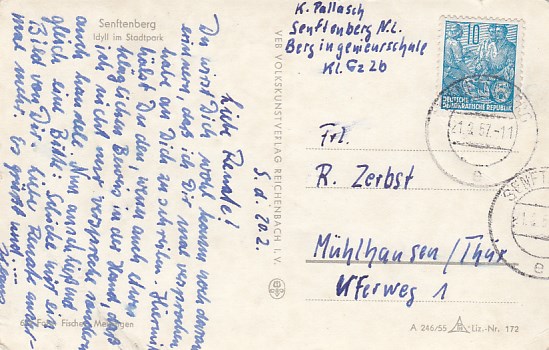 Senftenberg
Idyll im Stadtpark
S. d. 20.2.
Liebe Renate!
Du wirst Dich wohl kaum noch daran
erinnern, daß ich Dir mal versprochen
habe an Dich zu schreiben. Hiermit
hast Du den, wenn auch etwas
Beweis in der Hand, daß
ich nicht nur verspreche sondern
auch handele. Nun anschließend
gleich eine Bitte: Schicke mir ein
Bild von Dir, liebe Renate
mal mehr. Es grüßt
VEB VOLKSKUNSTVERLAG REICHENBACH I. V.
K. Pallasch
Senftenberg N.L.
Bergingenieurschule
Kl. G2 2b
10
DEUTSCHE
DEMOKRATISCHE REPUBLIK
21.2.57.-11
e
SENFT
e
Frl.
R. Zerbst
Mühlhausen/Thür
Uferweg 1
Foto Fischer, Meiningen
A 246/55 Liz.-Nr. 172